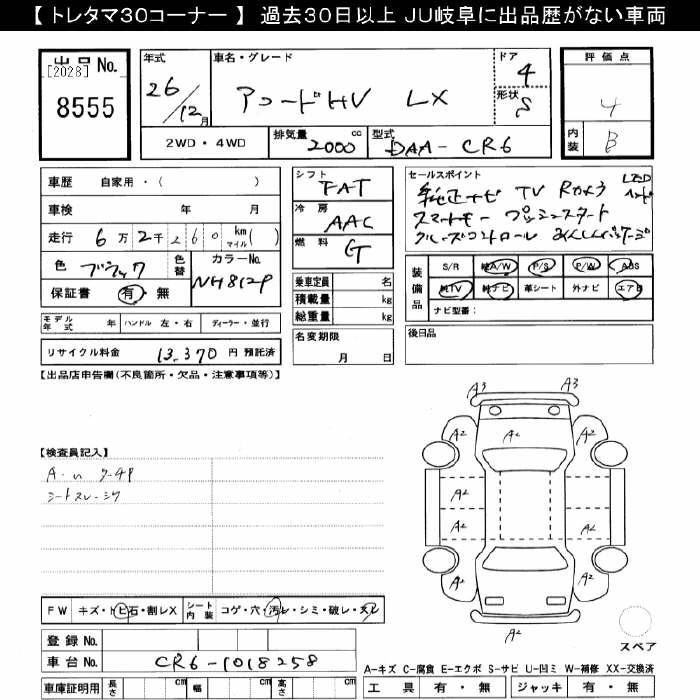 【 トレタマ30コーナー 】 過去30日以上 JU岐阜に出品歴がない車両
出品 No.
[2028]
8555
年式
26/12月
車名・グレード
アコードHV LX
ドア 4
形状 S
評価点
4
内装 B
2WD・4WD
排気量 2000 cc
型式 DAA-CR6
車歴 自家用・( )
車検 年 月
走行 6万2千260 km マイル( )
色 ブラック
色替
カラーNo. NH812P
保証書 有・無
シフト FAT
冷房 AAC
燃料 G
乗車定員 名
積載量 kg
総重量 kg
セールスポイント
純正ナビ TV Rカメラ LED
スマートキー プッシュスタート
クルーズコントロール あんしんパッケージ
装備品
S/R 純A/W P/S P/W ABS
純TV 純ナビ 革シート 外ナビ エアB
ナビ型番:
モデル年式 年 ハンドル 左・右 ディーラー・並行
名変期限
月 日
後日品
リサイクル料金 13,370 円 預託済
【出品店申告欄(不良箇所・欠品・注意事項等)】
A3 A3
A2 A2 A2
A2
A2 A2
A2 A2
A2
【検査員記入】
シートスレ・シワ
FW キズ・トビ石・割レX
シート内装 コゲ・穴・汚レ・シミ・破レ・スレ
登録 No.
車台 No. CR6-1018258
スペア
A-キズ C-腐食 E-エクボ S-サビ U-凹ミ W-補修 XX-交換済
車庫証明用 長さ cm 幅 cm 高さ cm
工具 有・無 ジャッキ 有・無